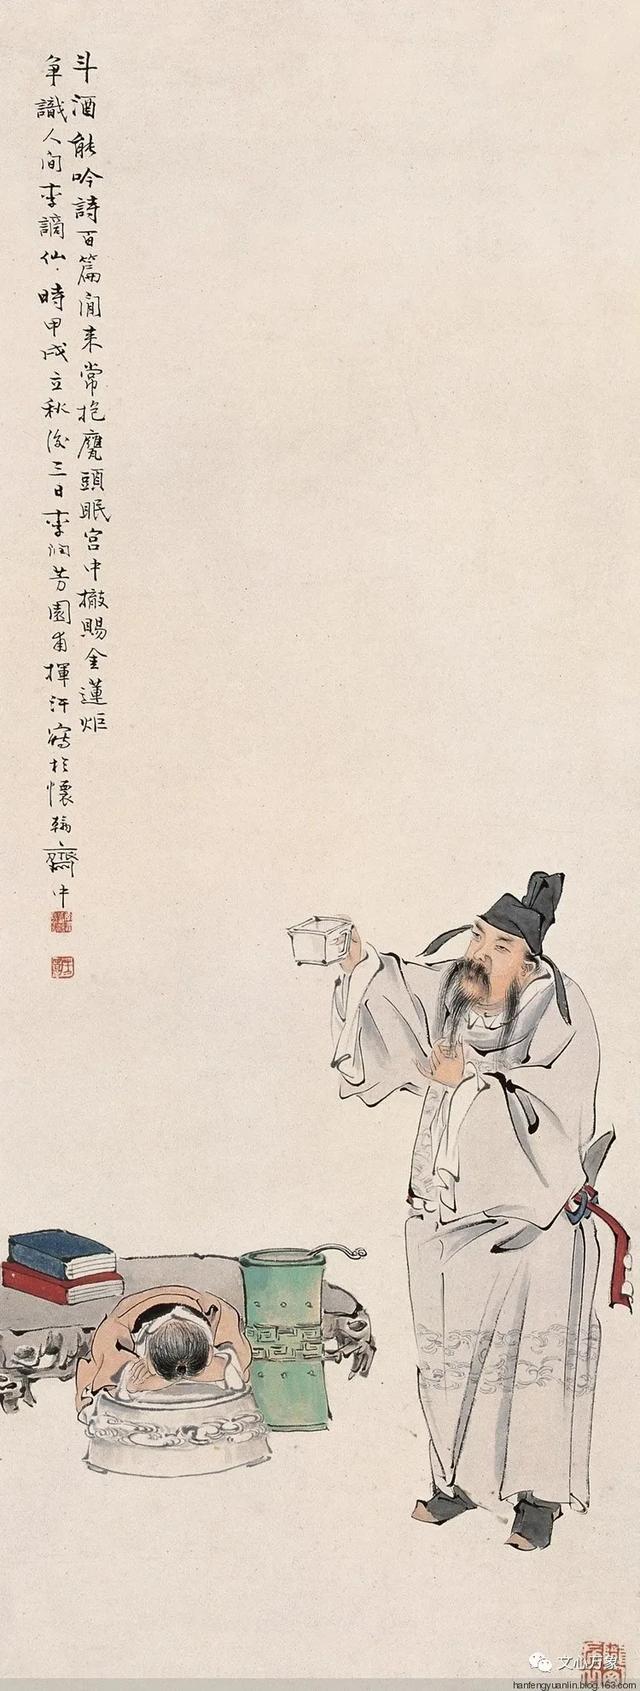 斗酒能吟詩百篇閒来常抱甕頭眠宮中撤賜金蓮炬
争識人間李謫仙時甲戌立秋後三日李潤芳園甫揮汗寫於懷翰齋中
文心万象
hanfengyuanlin.blog.163.com